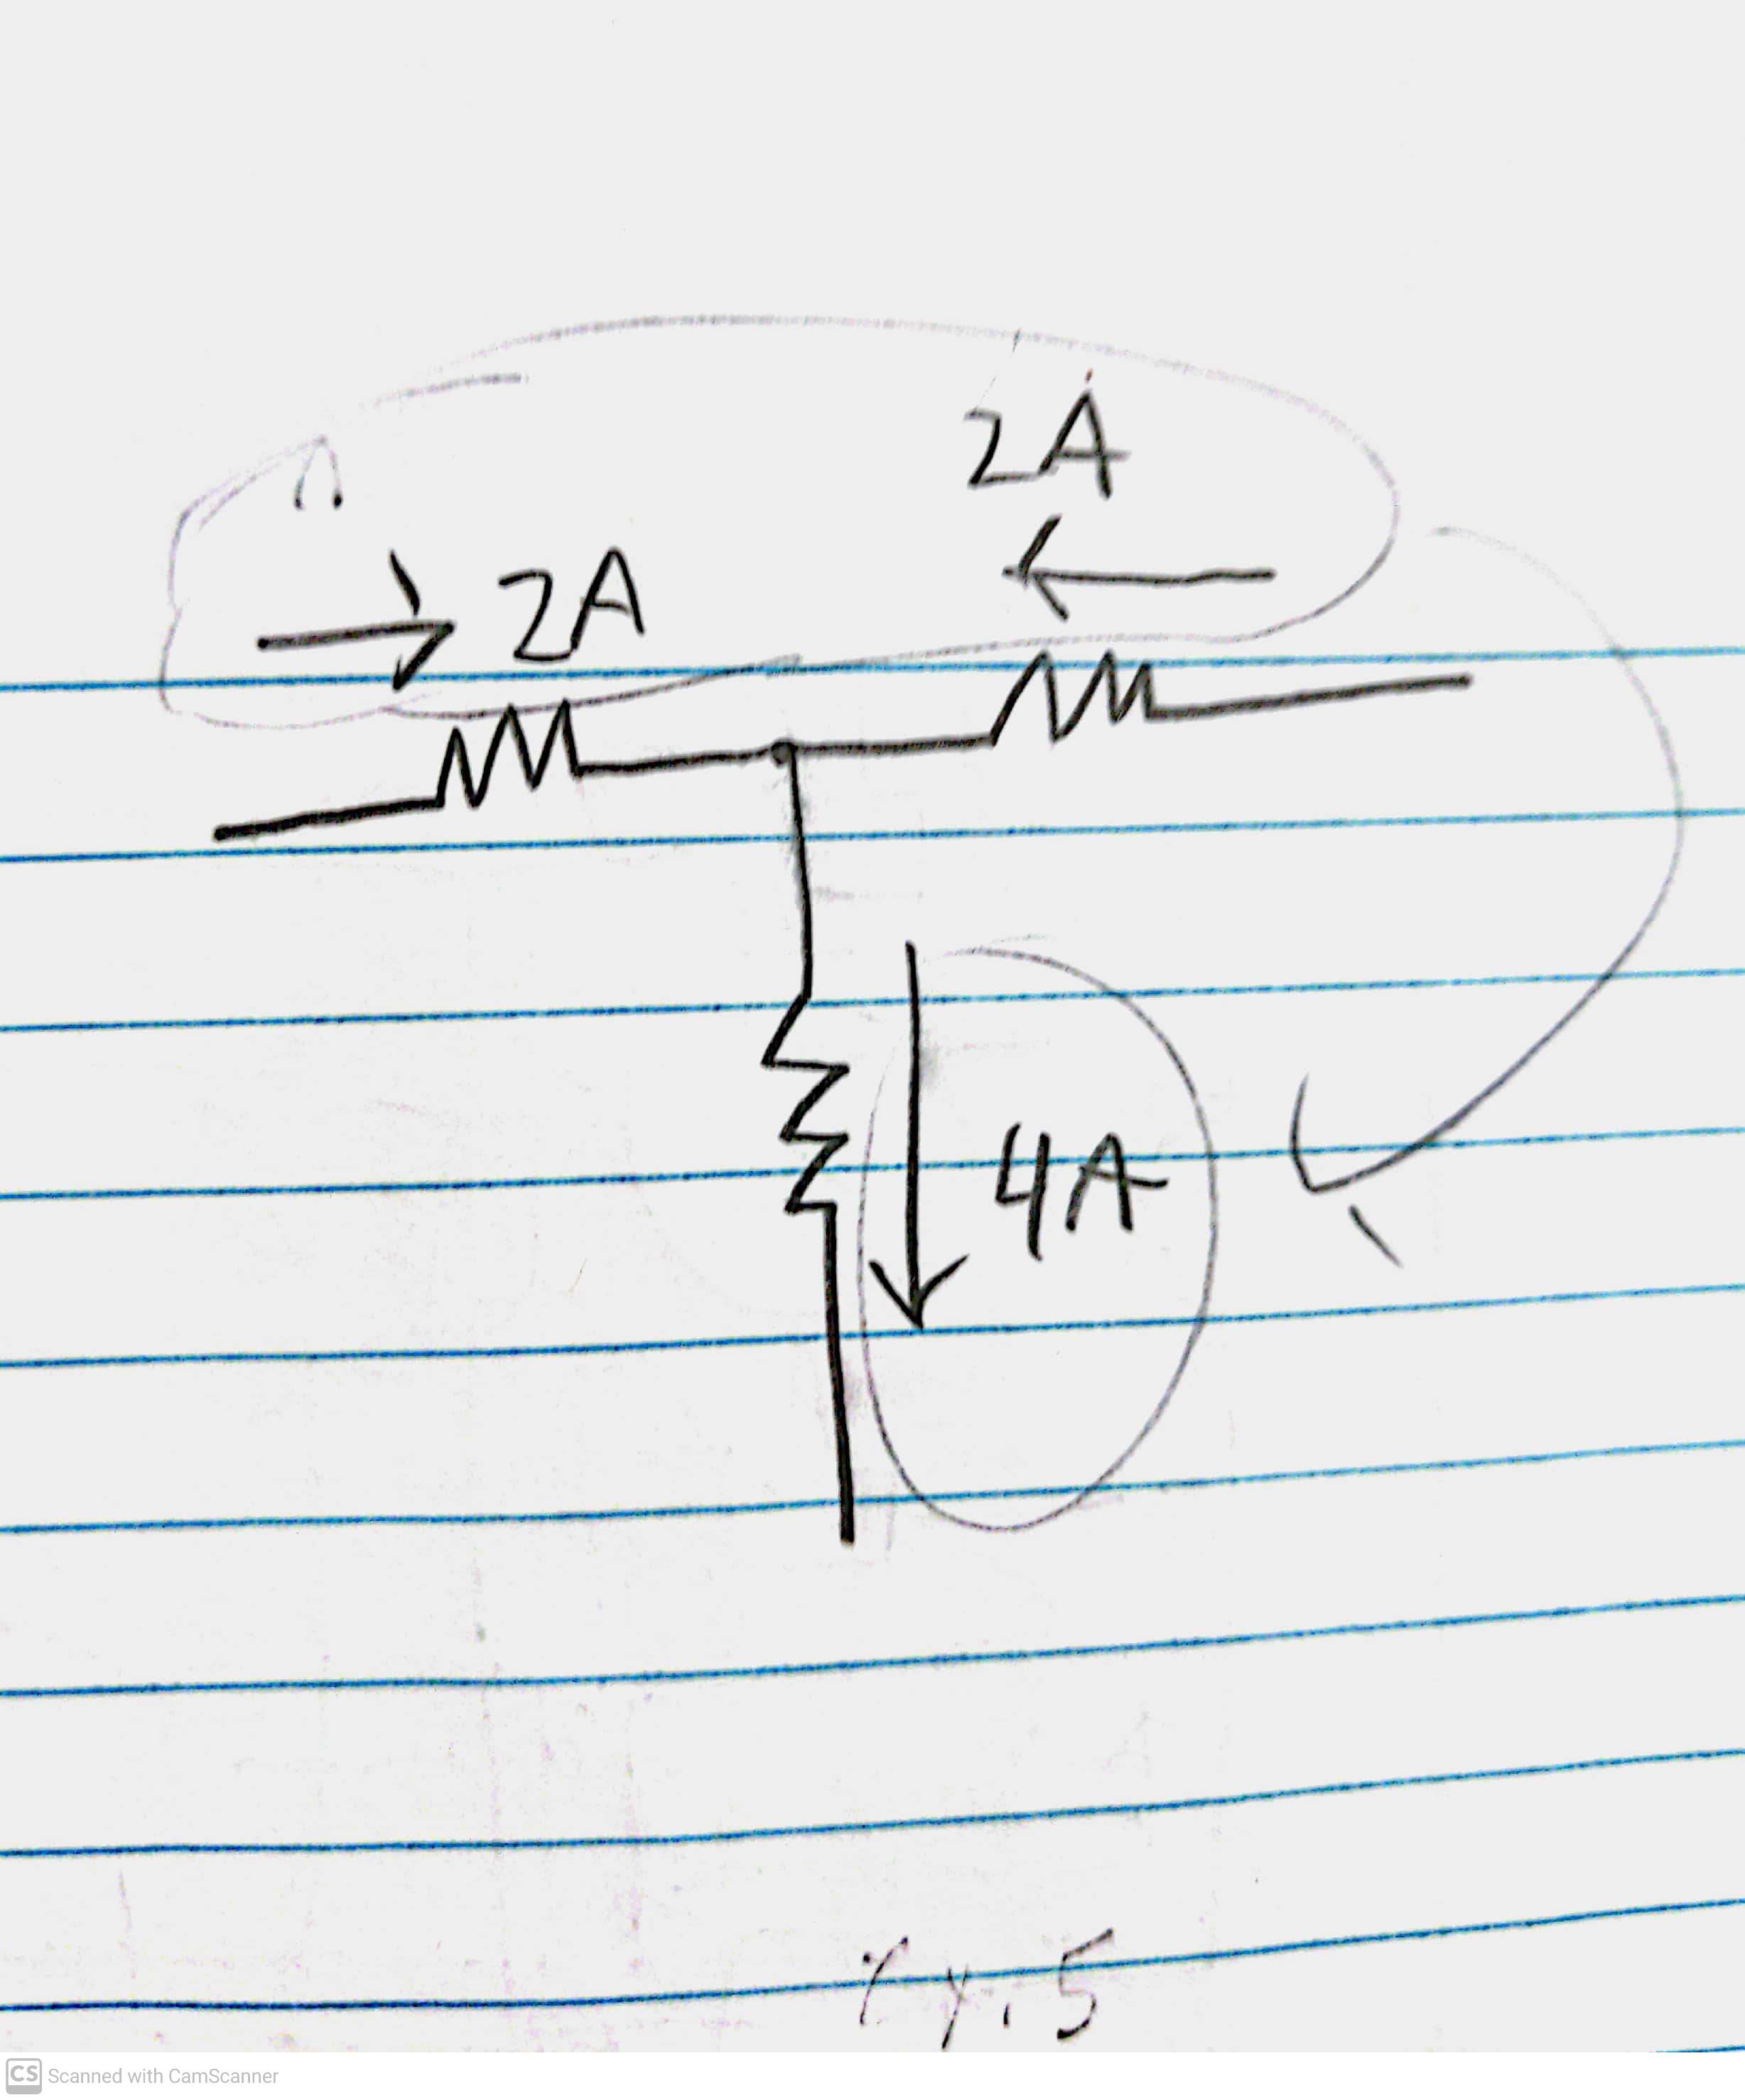 2A
2A
4A
CS Scanned with CamScanner